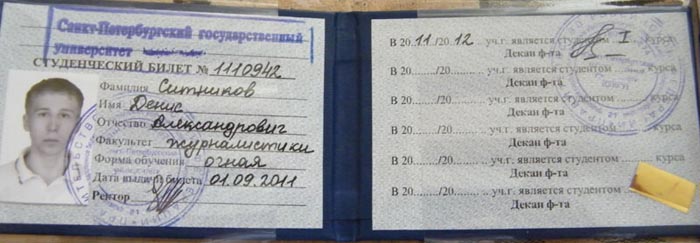 Санкт-Петербургский государственный
университет
СТУДЕНЧЕСКИЙ БИЛЕТ № 1110942
Фамилия Ситников
Имя Денис
Отчество Александрович
Факультет журналистики
Форма обучения очная
Дата выдачи билета 01.09.2011
Ректор
В 2011/2012 уч.г. является студентом I курса
Декан ф-та
В 20....../20...... уч.г. является студентом ........ курса
Декан ф-та
В 20....../20...... уч.г. является студентом ........ курса
Декан ф-та
В 20....../20...... уч.г. является студентом ........ курса
Декан ф-та
В 20....../20...... уч.г. является студентом ........ курса
Декан ф-та
В 20....../20...... уч.г. является студентом
Декан ф-та